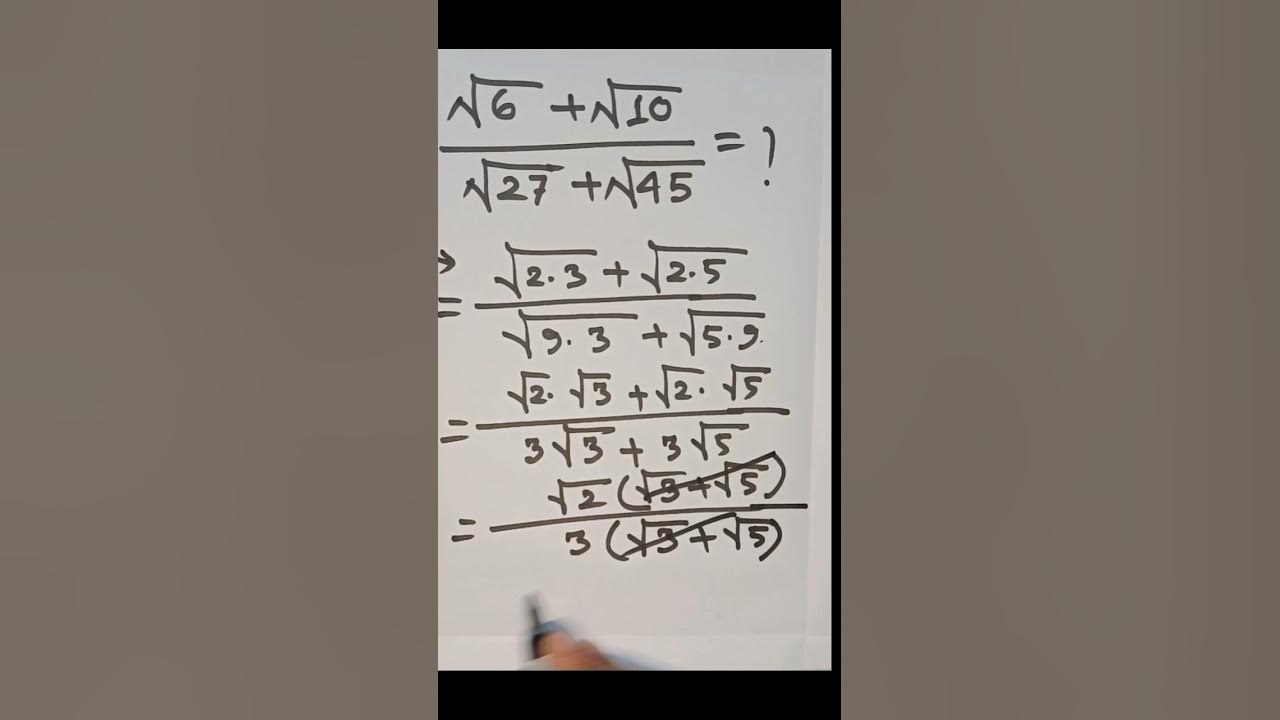 √6 + √10
√27 + √45 = ?
→ √2·3 + √2·5
= √9·3 + √5·9
√2· √3 + √2· √5
= 3√3 + 3√5
√2 (√3+√5)
= 3 (√3+√5)